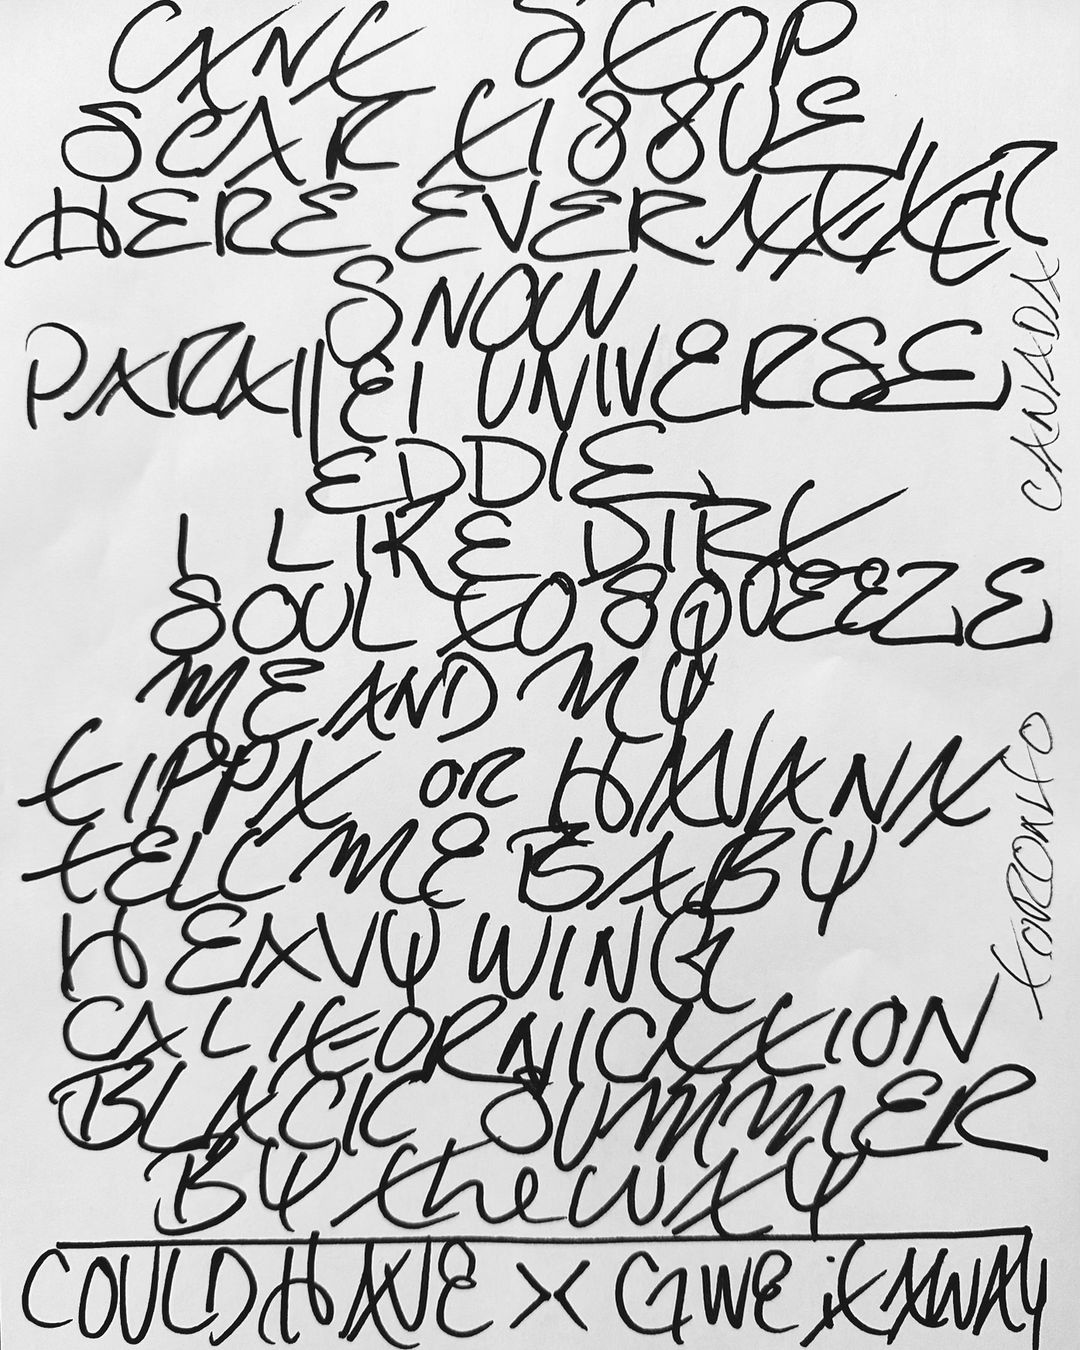 CANT STOP
SCAR TISSUE
HERE EVER AFTER
SNOW
PARALLEL UNIVERSE
EDDIE
I LIKE DIRT
SOUL TO SQUEEZE
ME AND MY
TIPPA OR HAVANA
TELL ME BABY
HEAVY WING
CALIFORNICATION
BLACK SUMMER
BY the WAY
COULD HAVE X GIVE iT AWAY
CANADA
TORONTO